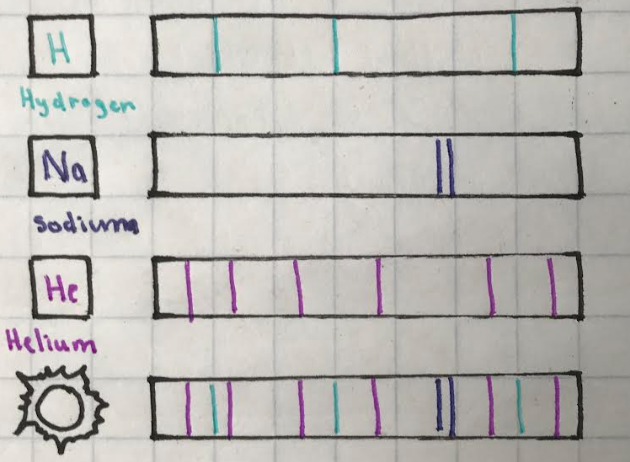 H
Hydrogen
Na
sodium
He
Helium